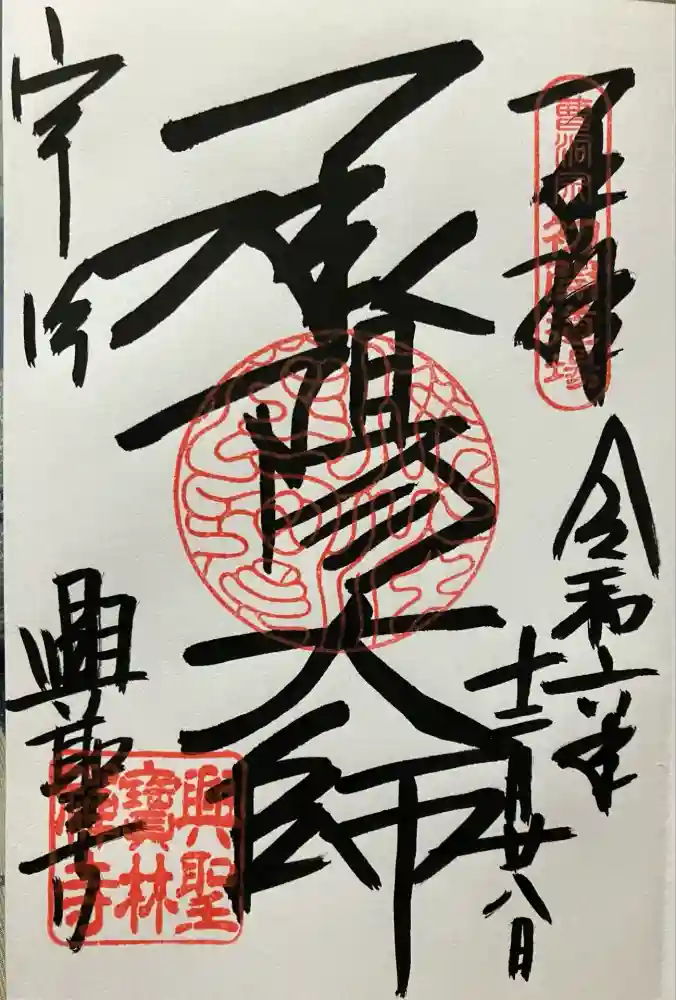 奉拝
曹洞宗初開道場
令和六年
十二月廿八日
承陽大師
宇治
興聖寺
興聖
寶林
禪寺